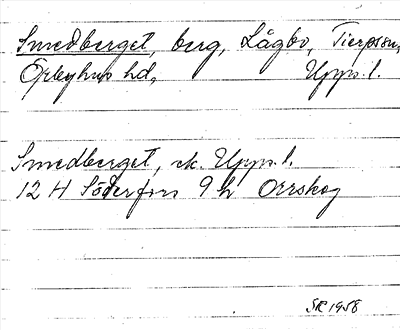 Smedberget, berg, Lågbo, Tierpssn,
Örbyhus hd, Upps. l.
Smedberget, ek. Upps. l.
12 H Söderfors 9 h Orrskog
SR 1958